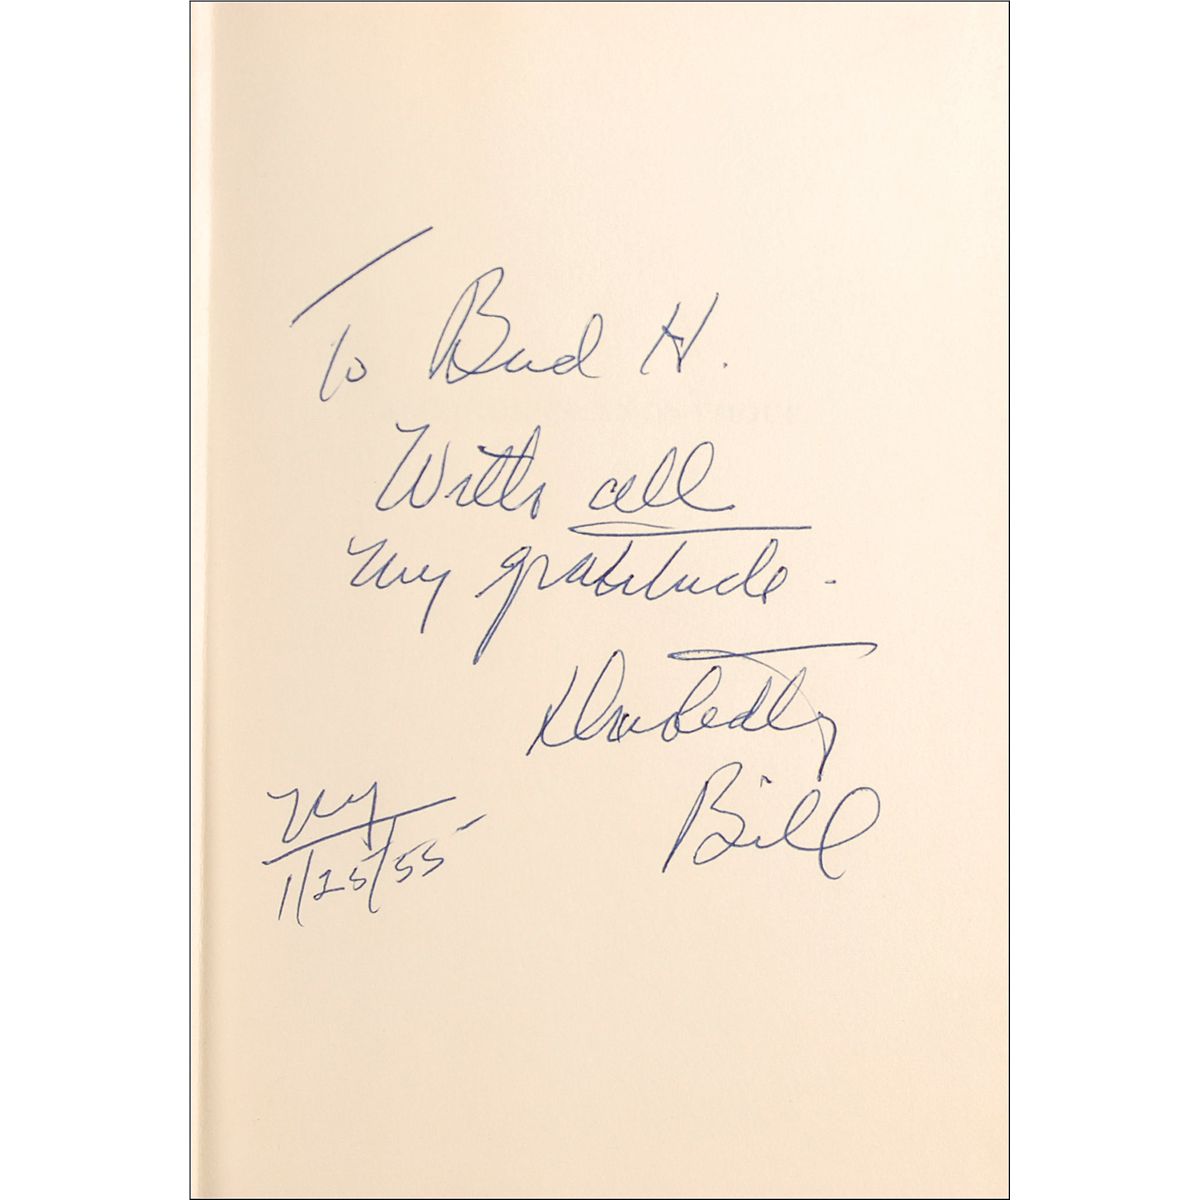 To Bud H.
With all
my gratitude.
Devotedly
Bill
NY
1/25/55